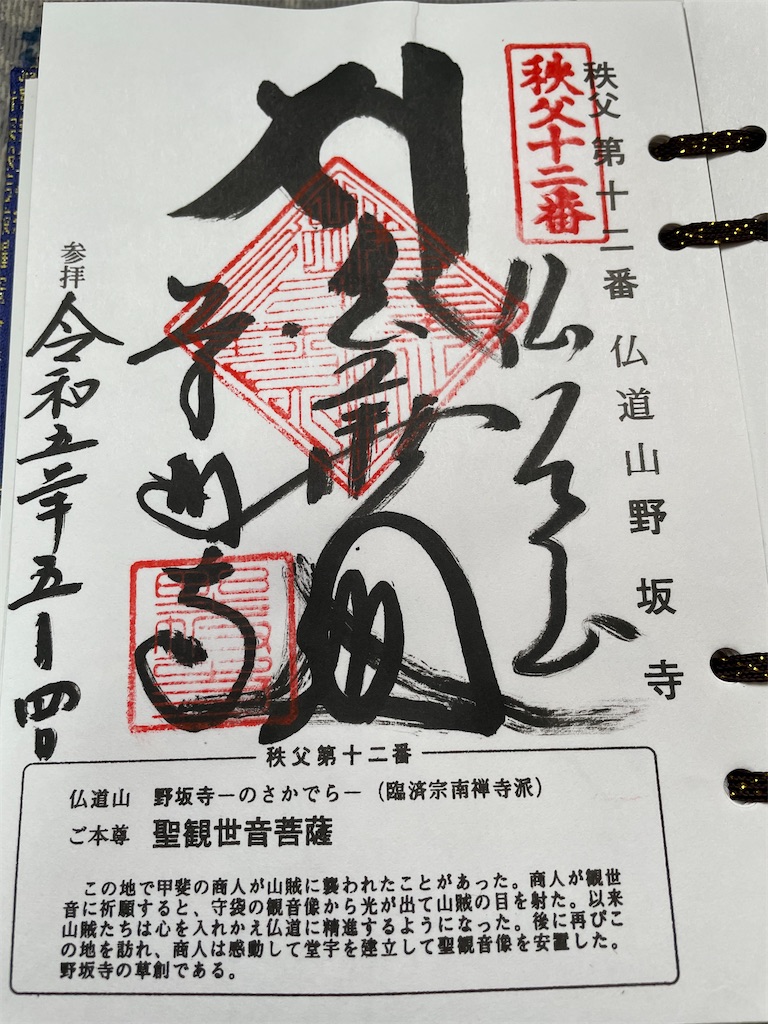 秩父十二番
秩父 第十二番 仏道山野坂寺
仏道山
野坂寺
参拝
令和五年五月四日
秩父第十二番
仏道山 野坂寺－のさかでら－（臨済宗南禅寺派）
ご本尊 聖観世音菩薩
この地で甲斐の商人が山賊に襲われたことがあった。商人が観世
音に祈願すると、守袋の観音像から光が出て山賊の目を射た。以来
山賊たちは心を入れかえ仏道に精進するようになった。後に再びこ
の地を訪れ、商人は感動して堂宇を建立して聖観音像を安置した。
野坂寺の草創である。